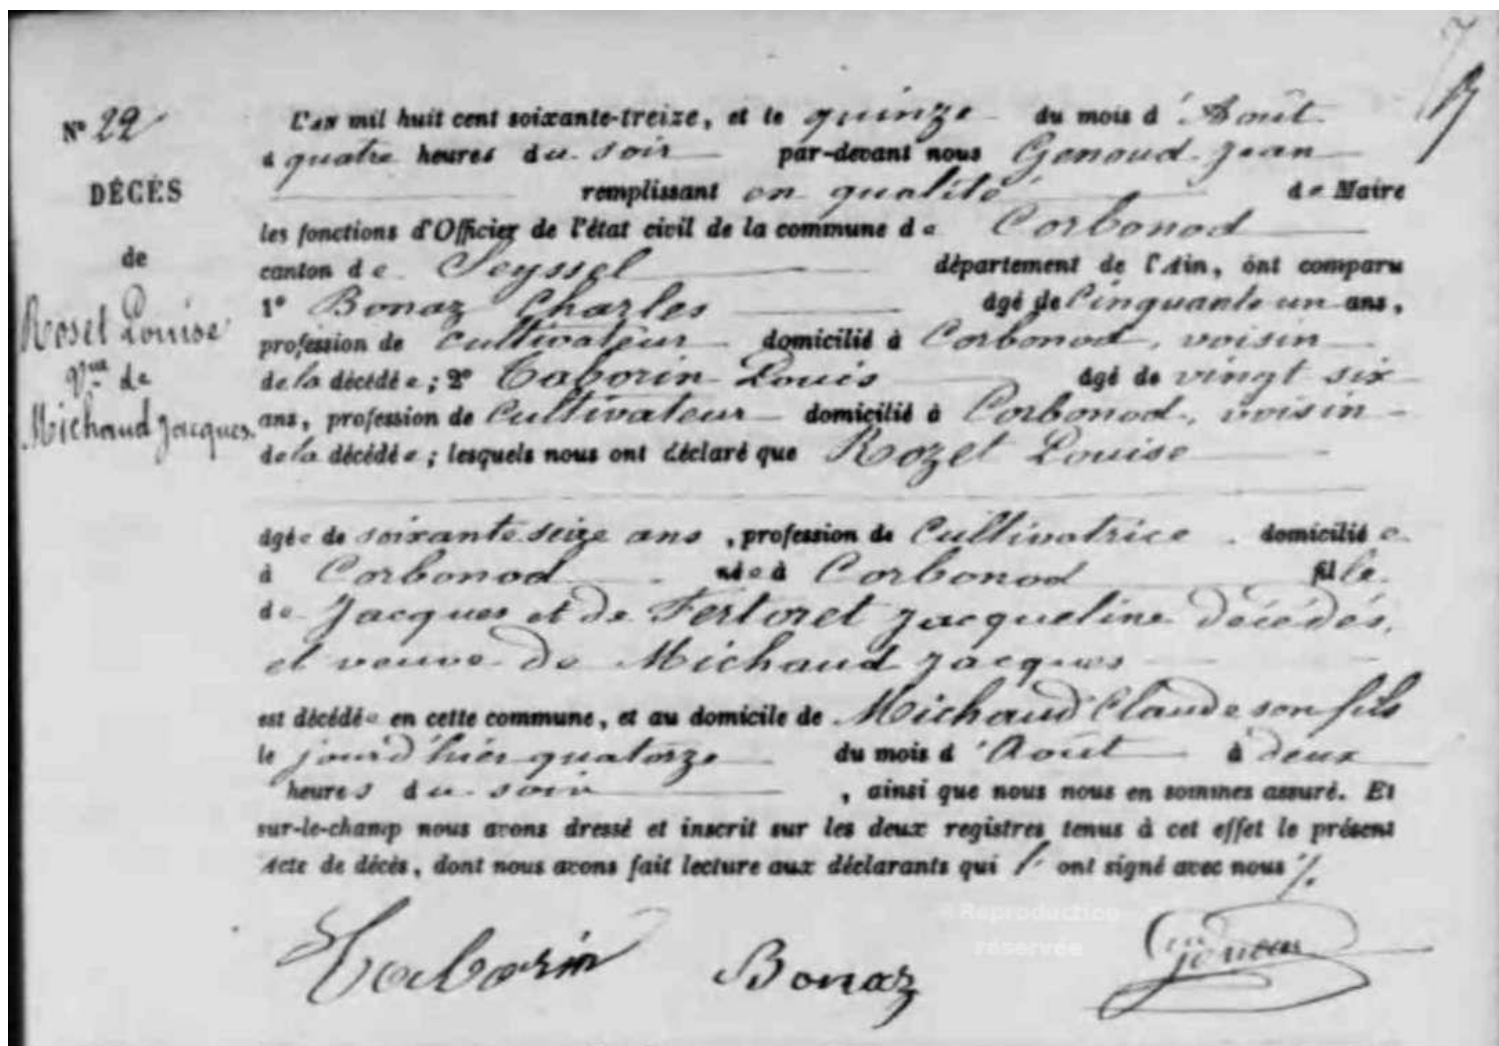 Nº 22
DÉCÈS
de
Roset Louise
Vve de
Michaud Jacques.
L'AN mil huit cent soixante-treize, et le quinze du mois d'Août
à quatre heures du soir par-devant nous Genoud Jean
remplissant en qualité de Maire
les fonctions d'Officier de l'état civil de la commune de Corbonod
canton de Seyssel département de l'Ain, ont comparu
1º Bonaz Charles âgé de Cinquante un ans,
profession de Cultivateur domicilié à Corbonod, voisin
de la décédée; 2º Taborin Louis âgé de vingt six
ans, profession de Cultivateur domicilié à Corbonod, voisin
de la décédée; lesquels nous ont déclaré que Rozet Louise
âgée de soixante seize ans, profession de Cultivatrice domiciliée
à Corbonod née à Corbonod fille
de Jacques et de Fertoret Jacqueline décédés,
et veuve de Michaud Jacques
est décédée en cette commune, et au domicile de Michaud Claude son fils
le jourd'hier quatorze du mois d'Août à deux
heures du soir, ainsi que nous nous en sommes assuré. Et
sur-le-champ nous avons dressé et inscrit sur les deux registres tenus à cet effet le présent
Acte de décès, dont nous avons fait lecture aux déclarants qui l'ont signé avec nous
Taborin Bonaz Genoud
Reproduction
réservée